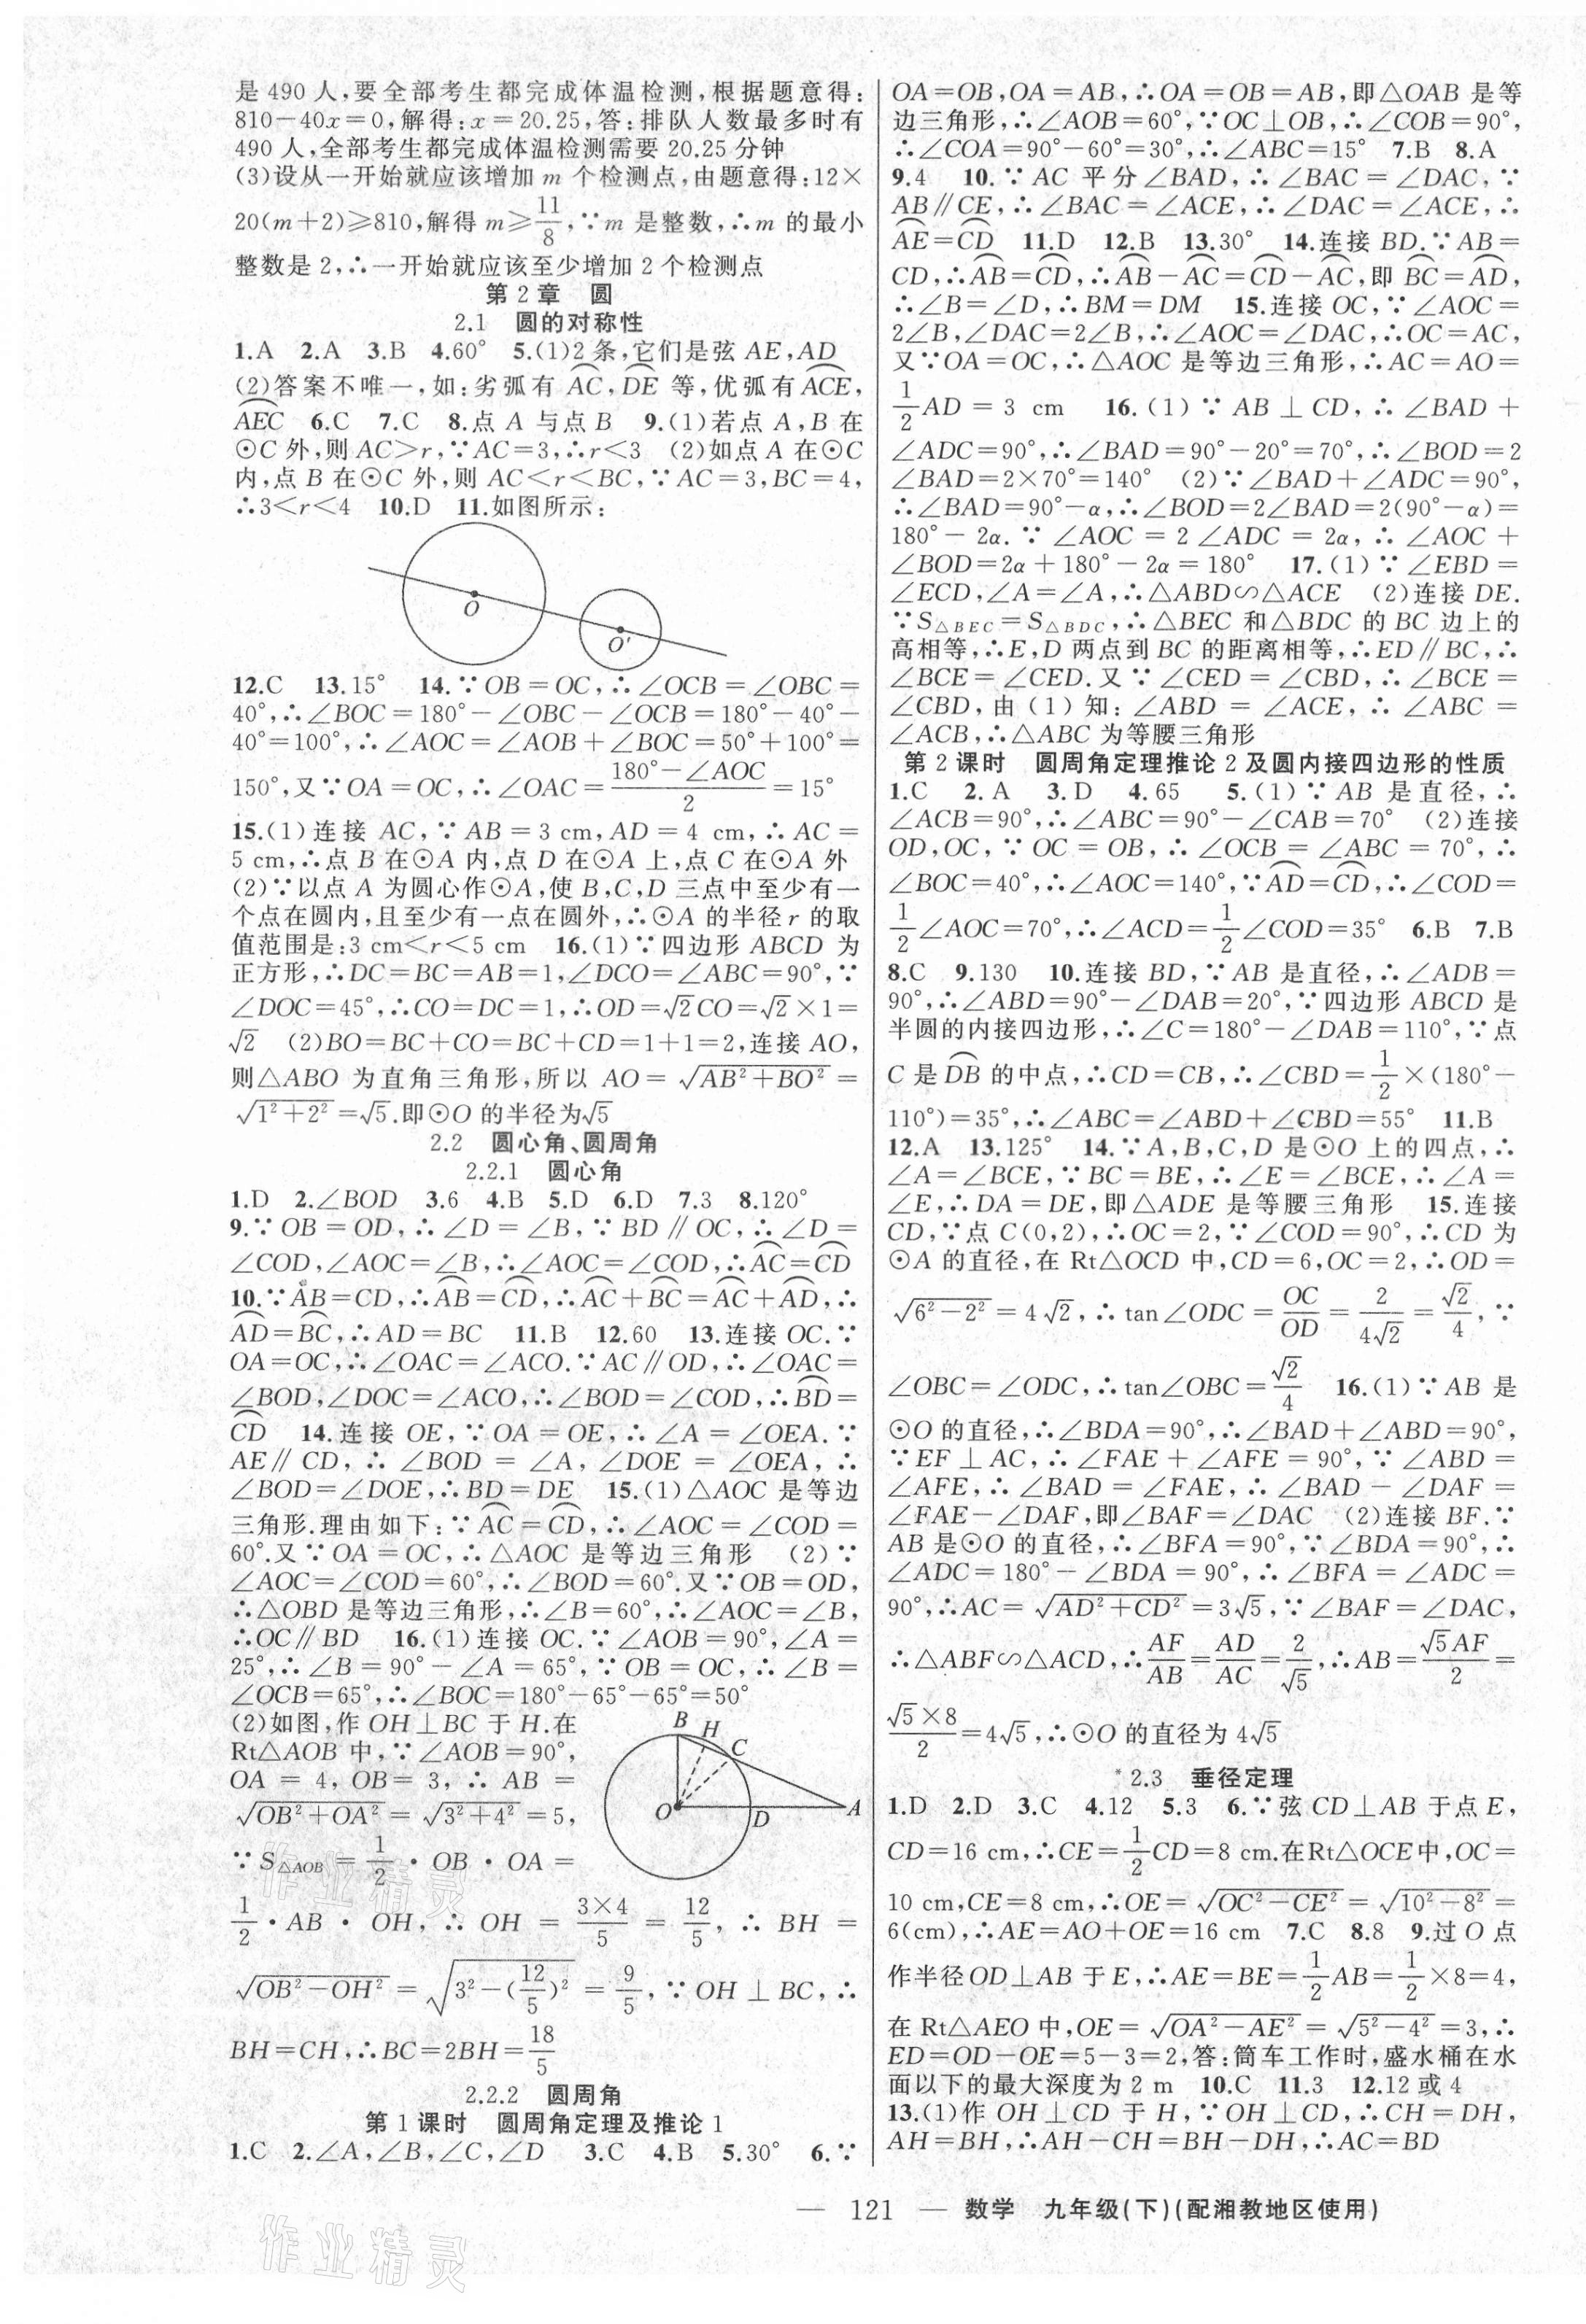 是490人,要全部考生都完成体温检测,根据题意得:
810-40x=0,解得:x=20.25,答:排队人数最多时有
490人,全部考生都完成体温检测需要20.25分钟
(3)设从一开始就应该增加m个检测点,由题意得:12×
20(m+2)≥810,解得m≥11/8,∵m是整数,∴m的最小
整数是2,∴一开始就应该至少增加2个检测点
第2章 圆
2.1 圆的对称性
1.A 2.A 3.B 4.60° 5.(1)2条,它们是弦AE,AD
(2)答案不唯一,如:劣弧有⌒AC,⌒DE等,优弧有⌒ACE,
⌒AEC 6.C 7.C 8.点A与点B 9.(1)若点A,B在
⊙C外,则AC>r,∵AC=3,∴r<3 (2)如点A在⊙C
内,点B在⊙C外,则AC<r<BC,∵AC=3,BC=4,
∴3<r<4 10.D 11.如图所示:
O
O'
12.C 13.15° 14.∵OB=OC,∴∠OCB=∠OBC=
40°,∴∠BOC=180°-∠OBC-∠OCB=180°-40°-
40°=100°,∴∠AOC=∠AOB+∠BOC=50°+100°=
150°,又∵OA=OC,∴∠OAC=(180°-∠AOC)/2=15°
15.(1)连接AC,∵AB=3 cm,AD=4 cm,∴AC=
5 cm,∴点B在⊙A内,点D在⊙A上,点C在⊙A外
(2)∵以点A为圆心作⊙A,使B,C,D三点中至少有一
个点在圆内,且至少有一点在圆外,∴⊙A的半径r的取
值范围是:3 cm<r<5 cm 16.(1)∵四边形ABCD为
正方形,∴DC=BC=AB=1,∠DCO=∠ABC=90°,∵
∠DOC=45°,∴CO=DC=1,∴OD=√2CO=√2×1=
√2 (2)BO=BC+CO=BC+CD=1+1=2,连接AO,
则△ABO为直角三角形,所以AO=√(AB²+BO²)=
√(1²+2²)=√5.即⊙O的半径为√5
2.2 圆心角、圆周角
2.2.1 圆心角
1.D 2.∠BOD 3.6 4.B 5.D 6.D 7.3 8.120°
9.∵OB=OD,∴∠D=∠B,∵BD∥OC,∴∠D=
∠COD,∠AOC=∠B,∴∠AOC=∠COD,∴⌒AC=⌒CD
10.∵AB=CD,∴⌒AB=⌒CD,∴⌒AC+⌒BC=⌒AC+⌒AD,∴
⌒AD=⌒BC,∴AD=BC 11.B 12.60 13.连接OC.∵
OA=OC,∴∠OAC=∠ACO.∵AC∥OD,∴∠OAC=
∠BOD,∠DOC=∠ACO,∴∠BOD=∠COD,∴⌒BD=
⌒CD 14.连接OE,∵OA=OE,∴∠A=∠OEA.∵
AE∥CD,∴∠BOD=∠A,∠DOE=∠OEA,∴
∠BOD=∠DOE,∴BD=DE 15.(1)△AOC是等边
三角形.理由如下:∵⌒AC=⌒CD,∴∠AOC=∠COD=
60°.又∵OA=OC,∴△AOC是等边三角形 (2)∵
∠AOC=∠COD=60°,∴∠BOD=60°.又∵OB=OD,
∴△OBD是等边三角形,∴∠B=60°,∴∠AOC=∠B,
∴OC∥BD 16.(1)连接OC.∵∠AOB=90°,∠A=
25°,∴∠B=90°-∠A=65°,∵OB=OC,∴∠B=
∠OCB=65°,∴∠BOC=180°-65°-65°=50°
(2)如图,作OH⊥BC于H.在
Rt△AOB中,∵∠AOB=90°,
OA=4,OB=3,∴AB=
√(OB²+OA²)=√(3²+4²)=5,
∵S△AOB=1/2·OB·OA=
B
H
C
O
D
A
1/2·AB·OH,∴OH=(3×4)/5=12/5,∴BH=
√(OB²-OH²)=√(3²-(12/5)²)=9/5,∵OH⊥BC,∴
BH=CH,∴BC=2BH=18/5
2.2.2 圆周角
第1课时 圆周角定理及推论1
1.C 2.∠A,∠B,∠C,∠D 3.C 4.B 5.30° 6.∵
OA=OB,OA=AB,∴OA=OB=AB,即△OAB是等
边三角形,∴∠AOB=60°,∵OC⊥OB,∴∠COB=90°,
∴∠COA=90°-60°=30°,∴∠ABC=15° 7.B 8.A
9.4 10.∵AC平分∠BAD,∴∠BAC=∠DAC,∵
AB∥CE,∴∠BAC=∠ACE,∴∠DAC=∠ACE,∴
⌒AE=⌒CD 11.D 12.B 13.30° 14.连接BD.∵AB=
CD,∴⌒AB=⌒CD,∴⌒AB-⌒AC=⌒CD-⌒AC,即⌒BC=⌒AD,
∴∠B=∠D,∴BM=DM 15.连接OC,∵∠AOC=
2∠B,∠DAC=2∠B,∴∠AOC=∠DAC,∴OC=AC,
又∵OA=OC,∴△AOC是等边三角形,∴AC=AO=
1/2AD=3 cm 16.(1)∵AB⊥CD,∴∠BAD+
∠ADC=90°,∴∠BAD=90°-20°=70°,∴∠BOD=2
∠BAD=2×70°=140° (2)∵∠BAD+∠ADC=90°,
∴∠BAD=90°-α,∴∠BOD=2∠BAD=2(90°-α)=
180°-2α.∵∠AOC=2∠ADC=2α,∴∠AOC+
∠BOD=2α+180°-2α=180° 17.(1)∵∠EBD=
∠ECD,∠A=∠A,∴△ABD∽△ACE (2)连接DE.
∵S△BEC=S△BDC,∴△BEC和△BDC的BC边上的
高相等,∴E,D两点到BC的距离相等,∴ED∥BC,∴
∠BCE=∠CED.又∵∠CED=∠CBD,∴∠BCE=
∠CBD,由(1)知:∠ABD=∠ACE,∴∠ABC=
∠ACB,∴△ABC为等腰三角形
第2课时 圆周角定理推论2及圆内接四边形的性质
1.C 2.A 3.D 4.65 5.(1)∵AB是直径,∴
∠ACB=90°,∴∠ABC=90°-∠CAB=70° (2)连接
OD,OC,∵OC=OB,∴∠OCB=∠ABC=70°,∴
∠BOC=40°,∴∠AOC=140°,∵⌒AD=⌒CD,∴∠COD=
1/2∠AOC=70°,∴∠ACD=1/2∠COD=35° 6.B 7.B
8.C 9.130 10.连接BD,∵AB是直径,∴∠ADB=
90°,∴∠ABD=90°-∠DAB=20°,∵四边形ABCD是
半圆的内接四边形,∴∠C=180°-∠DAB=110°,∵点
C是⌒DB的中点,∴CD=CB,∴∠CBD=1/2×(180°-
110°)=35°,∴∠ABC=∠ABD+∠CBD=55° 11.B
12.A 13.125° 14.∵A,B,C,D是⊙O上的四点,∴
∠A=∠BCE,∵BC=BE,∴∠E=∠BCE,∴∠A=
∠E,∴DA=DE,即△ADE是等腰三角形 15.连接
CD,∵点C(0,2),∴OC=2,∵∠COD=90°,∴CD为
⊙A的直径,在Rt△OCD中,CD=6,OC=2,∴OD=
√(6²-2²)=4√2,∴tan∠ODC=OC/OD=2/(4√2)=√2/4,∵
∠OBC=∠ODC,∴tan∠OBC=√2/4 16.(1)∵AB是
⊙O的直径,∴∠BDA=90°,∴∠BAD+∠ABD=90°,
∵EF⊥AC,∴∠FAE+∠AFE=90°,∵∠ABD=
∠AFE,∴∠BAD=∠FAE,∴∠BAD-∠DAF=
∠FAE-∠DAF,即∠BAF=∠DAC (2)连接BF.∵
AB是⊙O的直径,∴∠BFA=90°,∵∠BDA=90°,∴
∠ADC=180°-∠BDA=90°,∴∠BFA=∠ADC=
90°,∴AC=√(AD²+CD²)=3√5,∵∠BAF=∠DAC,
∴△ABF∽△ACD,∴AF/AB=AD/AC=2/√5,∴AB=√5AF/2=
(√5×8)/2=4√5,∴⊙O的直径为4√5
*2.3 垂径定理
1.D 2.D 3.C 4.12 5.3 6.∵弦CD⊥AB于点E,
CD=16 cm,∴CE=1/2CD=8 cm.在Rt△OCE中,OC=
10 cm,CE=8 cm,∴OE=√(OC²-CE²)=√(10²-8²)=
6(cm),∴AE=AO+OE=16 cm 7.C 8.8 9.过O点
作半径OD⊥AB于E,∴AE=BE=1/2AB=1/2×8=4,
在Rt△AEO中,OE=√(OA²-AE²)=√(5²-4²)=3,∴
ED=OD-OE=5-3=2,答:筒车工作时,盛水桶在水
面以下的最大深度为2 m 10.C 11.3 12.12或4
13.(1)作OH⊥CD于H,∵OH⊥CD,∴CH=DH,
AH=BH,∴AH-CH=BH-DH,∴AC=BD
— 121 — 数学 九年级(下)(配湘教地区使用)
作业精灵
作业精灵